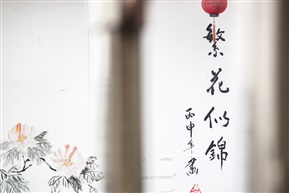 繁花似錦
丙申年